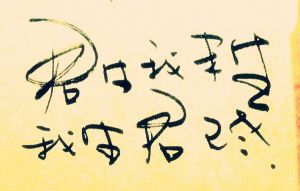 君生我未生
我生君已老.